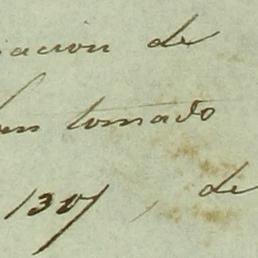 iacion de
un tomado
1307, de